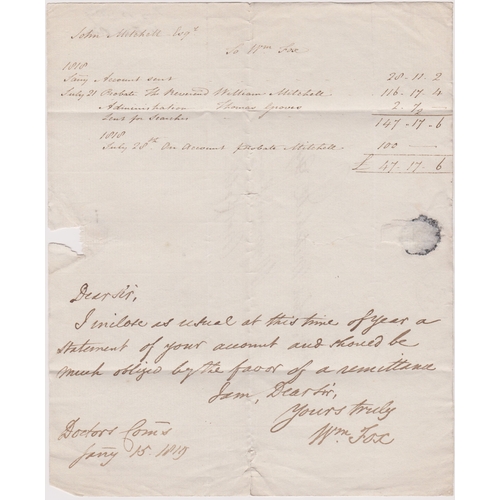 John Mitchell Esqr
To Wm Fox
1818
Jany Account sent 28-11-2
July 21 Probate The Reverend William Mitchell 116-17-4
Administration Thomas Groves 2-
Sent for Searches 147-17-6
1818
July 28th On Account Probate Mitchell 100
£ 47-17-6
Dear Sir,
I inclose as usual at this time of Year a
statement of your account and should be
much obliged by the favor of a remittance
I am, Dear Sir,
Yours truly
Wm Fox
Doctors Coms
Jany 15. 1819